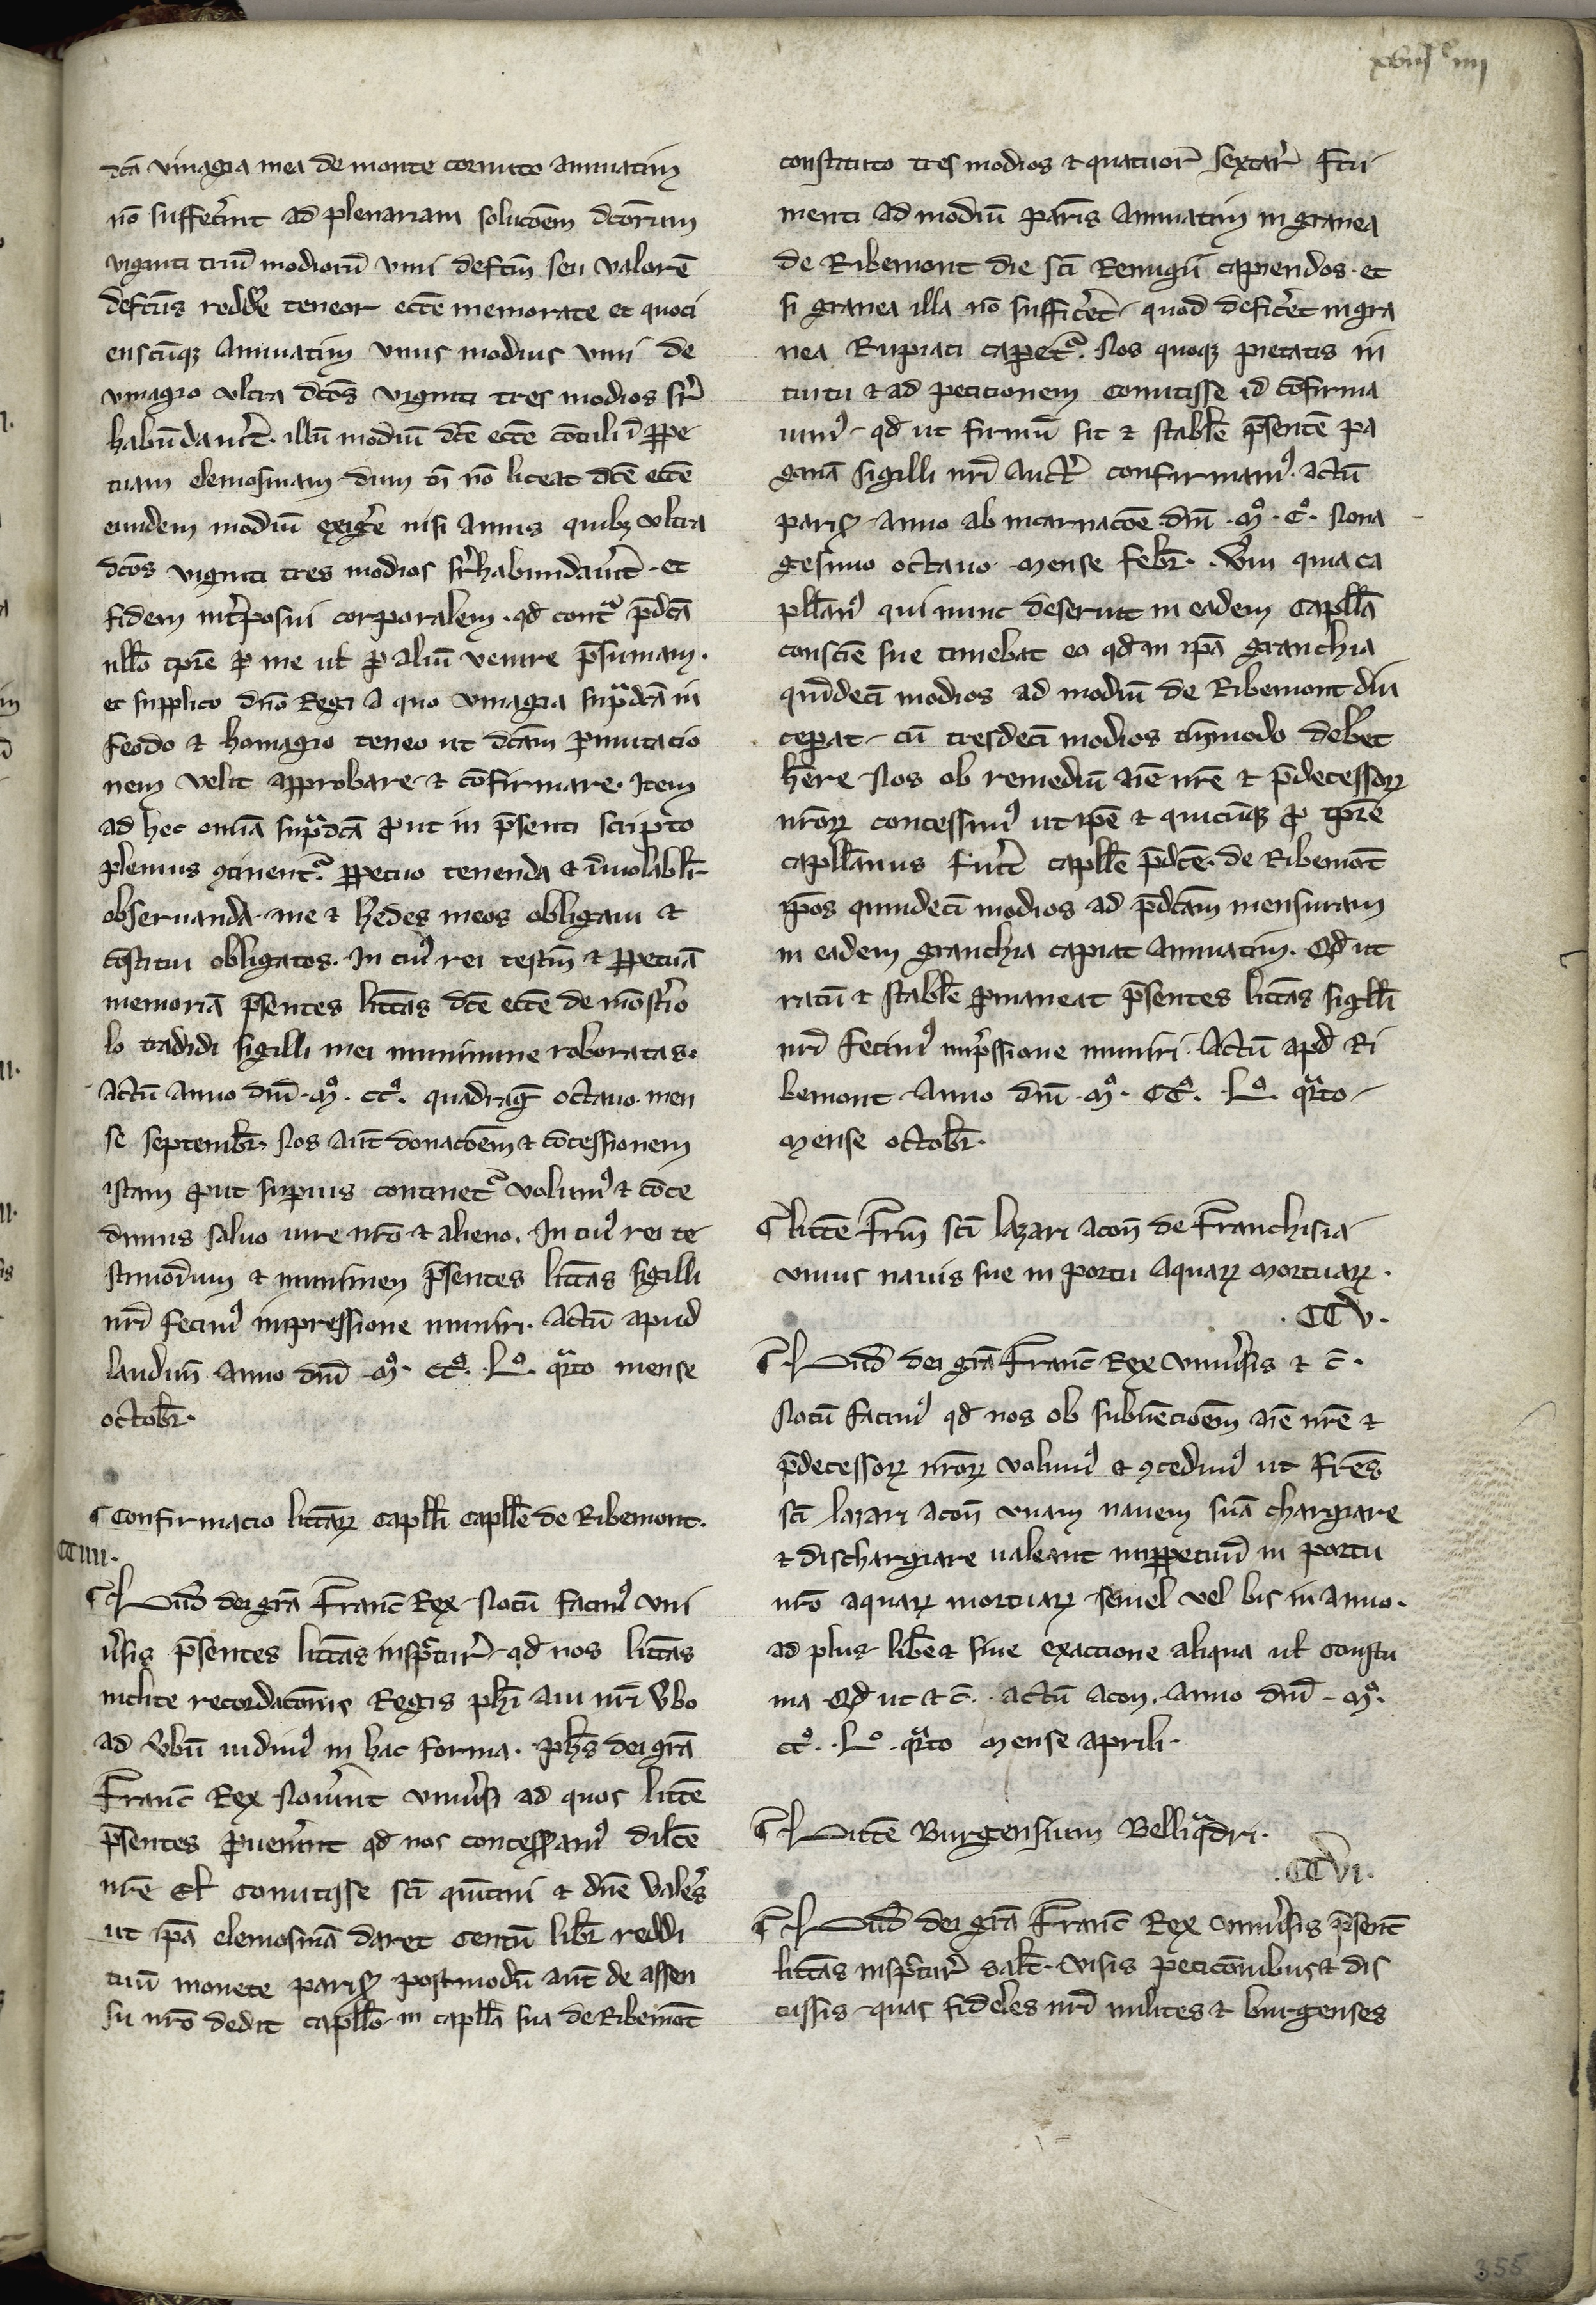 xviijxx iiij
dcā vinagia mea de monte cornuto annuatim
nō suffecerint ad plenariam solucōem dcōrum
viginti triū modiorū vini defectū seu valorē
defectus redde teneor eccē memorate et quoci
enscūqꝫ annuatim unus modius vini de
vinagio ultra dcōs viginti tres modios sr̄
habūdaverit. illū modiū dcē eccē cōtuli ī ꝑpe
tuam elemosinam dum tn̄ nō liceat dcē eccē
eundem modiū exigere nisi annis quibꝫ ultra
dcōs viginti tres modios sr̄habundaverit. et
fidem int̄posui corporalem. qd contra p̄dcā
nllō tꝑre ꝑ me ul ꝑ aliū venire p̄sumam.
et supplico dnō Regi a quo vinagia supradcā in
feodo & homagio teneo ut dcām ꝑmutacio
nem velit approbare & cōfirmare. Item
ad hec omīa supradcā ꝓut in p̄senti scripto
plenius ꝯtinentur. ꝑpetuo tenenda & īviolablr̄
observanda me & h̄edes meos obligavi &
cōstitui obligatos. In cuiꝰ rei testim̄ & ꝑpetuā
memoriā p̄sentes litt̄as dcē eccē de mōst̄io
lo tradidi sigilli mei munimine roboratas.
Actū anno dnī. mo. cco. quadraḡ octavo men
se septembr̄. Nos aut̄ donacōem & cōcessionem
istam ꝓut superius continetur volumꝰ & cōce
dimus salvo iure nrō & alieno. In cuiꝰ rei te
stimonium & munimen p̄sentes litt̄as sigilli
nrī fecimꝰ impressione muniri. Actū apud
laudun̄ anno dnī mo. cco. Lo. qrto mense
octobr̄.
¶ Confirmacio litt̄aꝝ capllī capllē de Ribemont.
CCiiii.
¶ Lud̄ dei grā Franc̄ Rex. Notū facimꝰ uni
v̄sis p̄sentes litt̄as inspectur̄ qd nos litt̄as
inclite recordacōnis Regis phī avi nrī v̄bo
ad v̄bū vidimꝰ in hac forma. phs̄ dei grā
Franc̄ Rex Nov̄int univ̄si ad quos litt̄e
p̄sentes ꝑven̄int qd nos concessamꝰ dilcē
nrē El Comitisse scī quītini & dnē Vales̄
ut ip̄a elemosinā daret centū libr̄ reddi
tuū monete parisꝭ postmodū aut̄ de assen
su nrō dedit capllō in capllā sua de Ribemōt
constituto tres modios & quatuor sextar̄ fru
menti ad modiū paris̄ annuatim in granea
de Ribemont die scī Remigii capiendos. et
si granea illa nō sufficeret quod deficeret in gra
nea Rupiaci capetur. Nos quoqꝫ pietatis in
tuitu & ad peticionem Comitisse id cōfirma
vimꝰ. qd ut firmū sit & stabilē p̄sentē pa
ginā sigilli nrī auct̄ confirmamꝰ. actū
parisꝭ anno ab incarnacōe dnī. mo. co. Nona
gesimo octavo. mense Febr̄. Vm̄ quia ca
pllānꝰ qui nunc deservit in eadem Capllā
consciē sue timebat eo qd in ip̄a granchia
quīdeci modios ad modiū de Ribemont diu
ceperat. cū tresdeci modios tn̄modo deberet
hēre. Nos ob remediū aīe nrē & p̄decessorꝝ
nrōꝝ concessimꝰ ut ip̄e & quicūqꝫ ꝓ tꝑre
capllānus fu̇it capllē p̄dcē. de Ribemōt
ip̄os quindeci modios ad p̄dcām mensuram
in eadem granchia capiat annuatim. Qd ut
ratū & stabilē ꝑmaneat p̄sentes litt̄as sigllī
nrī fecimꝰ imp̄ssione muniri. Actū apd Ri
bemont anno dnī mo. CCo. Lo. qrto
mense octobr̄.
¶ litt̄e Frm̄ scī lazari acon̄ de Franchisia
unius navis sue in portu Aquaꝝ mortuaꝝ.
.CCV.
¶ Lud̄ dei grā Franc̄ Rex univ̄sis & c̄.
Notū facimꝰ qd nos ob subvēcioēm aīe nrē &
p̄decessorꝝ nrōꝝ volumꝰ & ꝯcedimꝰ ut Frēs
scī lazari acon̄ unam navem suā chargiare
& dischargiare valeant imꝑpetuū in portu
nrō aquaꝝ mortuaꝝ semel vel bis in anno.
ad plus libe & sine exactione aliqua ul coustu
ma Qd ut & c̄. Actū Acon. anno dnī mo.
cco. Lo. qrto mense aprili.
¶ Litt̄e Burgensium Belliqadri.
.CCVI.
¶ Lud̄ dei grā Franc̄ Rex univ̄sis p̄sent̄
litt̄as inspectur̄ salt̄. Visis peticōnibus & dis
cussis quas fideles nrī milites & burgenses
355